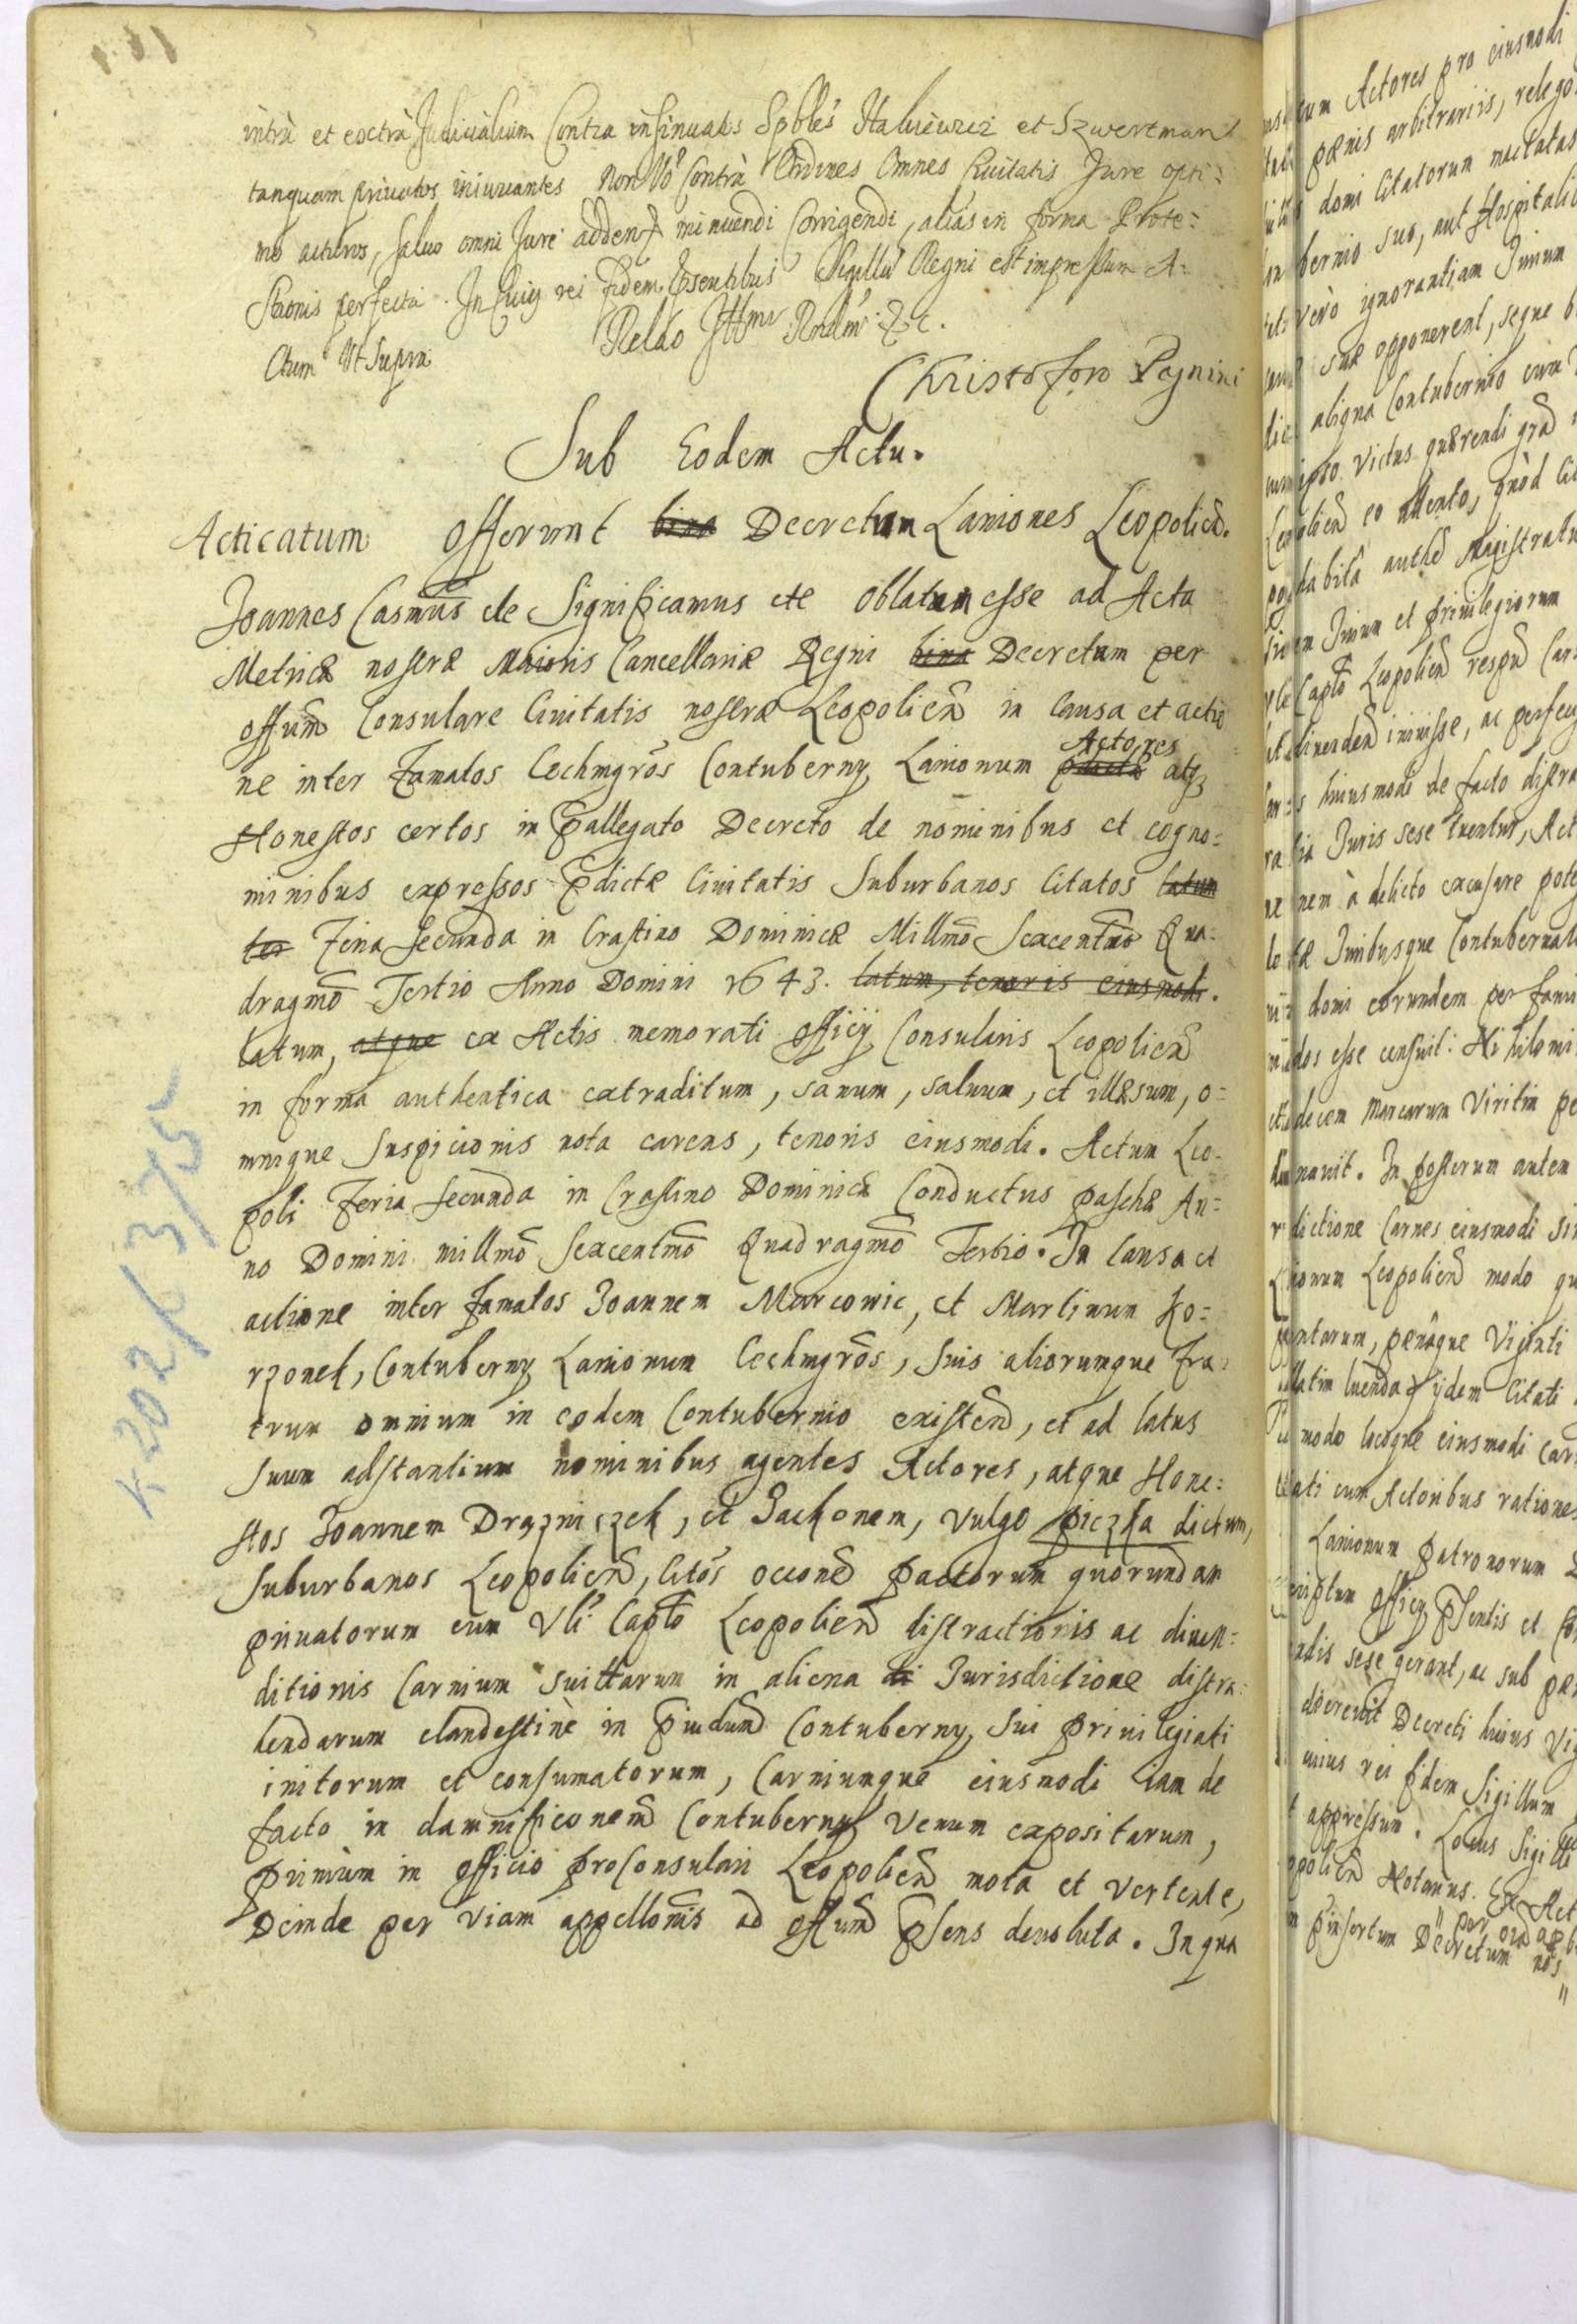 intrà et extrà Judicialium Contra insinuatos Spbles Haluiewicz et Szwertman
tanquam priuatos iniuriantes Non Vo Contrà Ordines Omnes Ciuitatis Jure opti=
mo acturos, saluo omni Jure addendi minuendi Corrigendi, aliàs in forma Prote=
staonis perfecta. In Cuius rei fidem Psentibus Sigillū Regni est impressum A=
Ctum Ut Supra
Relâo Jllmi Rndmi &c.
Christoforo Pegnini
Sub Eodem Actu.
Acticatum Offerunt bina Decretum Laniones Leopolien.
Joannes Casmus etc Significamus etc Oblatum esse ad Acta
Metricæ nostræ Maioris Cancellariæ Regni bina Decretum per
offum Consulare Ciuitatis nostræ Leopolien in Causa et actio
ne inter Famatos Cechmgros Contuberny Lanionum Actores atq
Honestos certos in pallegato Decreto de nominibus et cogno=
minibus expressos Pdictæ Ciuitatis Suburbanos Citatos latum
Feria Secunda in Crastino Dominicæ Millmo Sexcentmo Qua=
dragmo Tertio Anno Domini 1643. latum, tenoris eiusmodi.
latum, atque ex Actis memorati Officij Consularis Leopolien
in forma authentica extraditum, sanum, saluum, et illæsum, o=
mnique suspicionis nota carens, tenoris eiusmodi. Actum Leo=
poli Feria Secunda in Crastino Dominicæ Conductus paschæ An=
no Domini millmo Sexcentmo Quadragmo Tertio. In Causa et
actione inter Famatos Joannem Marcowic, et Martinum Ko=
rzonek, Contuberny Lanionum Cechmgros, Suis aliorumque Fra=
trum omnium in eodem Contubernio existen, et ad latus
Suum adstantium nominibus agentes Actores, atque Hone=
stos Joannem Drązniczek, et Jackonem, vulgo pieczka dictum,
Suburbanos Leopolien, Citos occone pactorum quorundam
priuatorum cum Vli Caplo Leopolien distractionis ac diuen=
ditionis Carnium Suillarum in aliena Jurisdictione distra=
hendarum clandestinè in piudum Contuberny Sui priuilegiati
initorum et consumatorum, Carniumque eiusmodi iam de
facto in damnificonem Contuberny venum expositarum,
primùm in officio proConsulari Leopolien mota et vertente,
Deinde per viam appellonis ad Offum psens deuoluta. In qua
k 202/b 375
cum Actores pro eiusmodi
pœnis arbitrariis, relego
domi Citatorum mactatas
bernio suo, aut Hospitali
verò ignorantiam Jurium
suæ opponerent, seque
aliqua Contubernio cum
ipso victus quærendi grã
eo attento, quòd
authe Magistratu
Jurium et priuilegiorum
Caplo Leopolien respu
iniuisse, ac perfec
huiusmodi de facto distra
Juris sese tuentur, Act
à delicto excusare pote
Juribusque Contubernal
domi eorundem per fam
esse censuit: Nihilomi
decem marcarum viritim
nauit. In posterum autem
dictione Carnes eiusmodi
Leopolien modo
pœnaque viginti
luenda ijdem Citati
modo locoque eiusmodi car
cum Actoribus ratione
Lanionum patronorum
Officy psentis et
sese gerant, ac sub
Decreti huius
rei fidem Sigillum
appressum. Locus Sigilli
Notarius. Ex Act
pinsertum Decretum nos